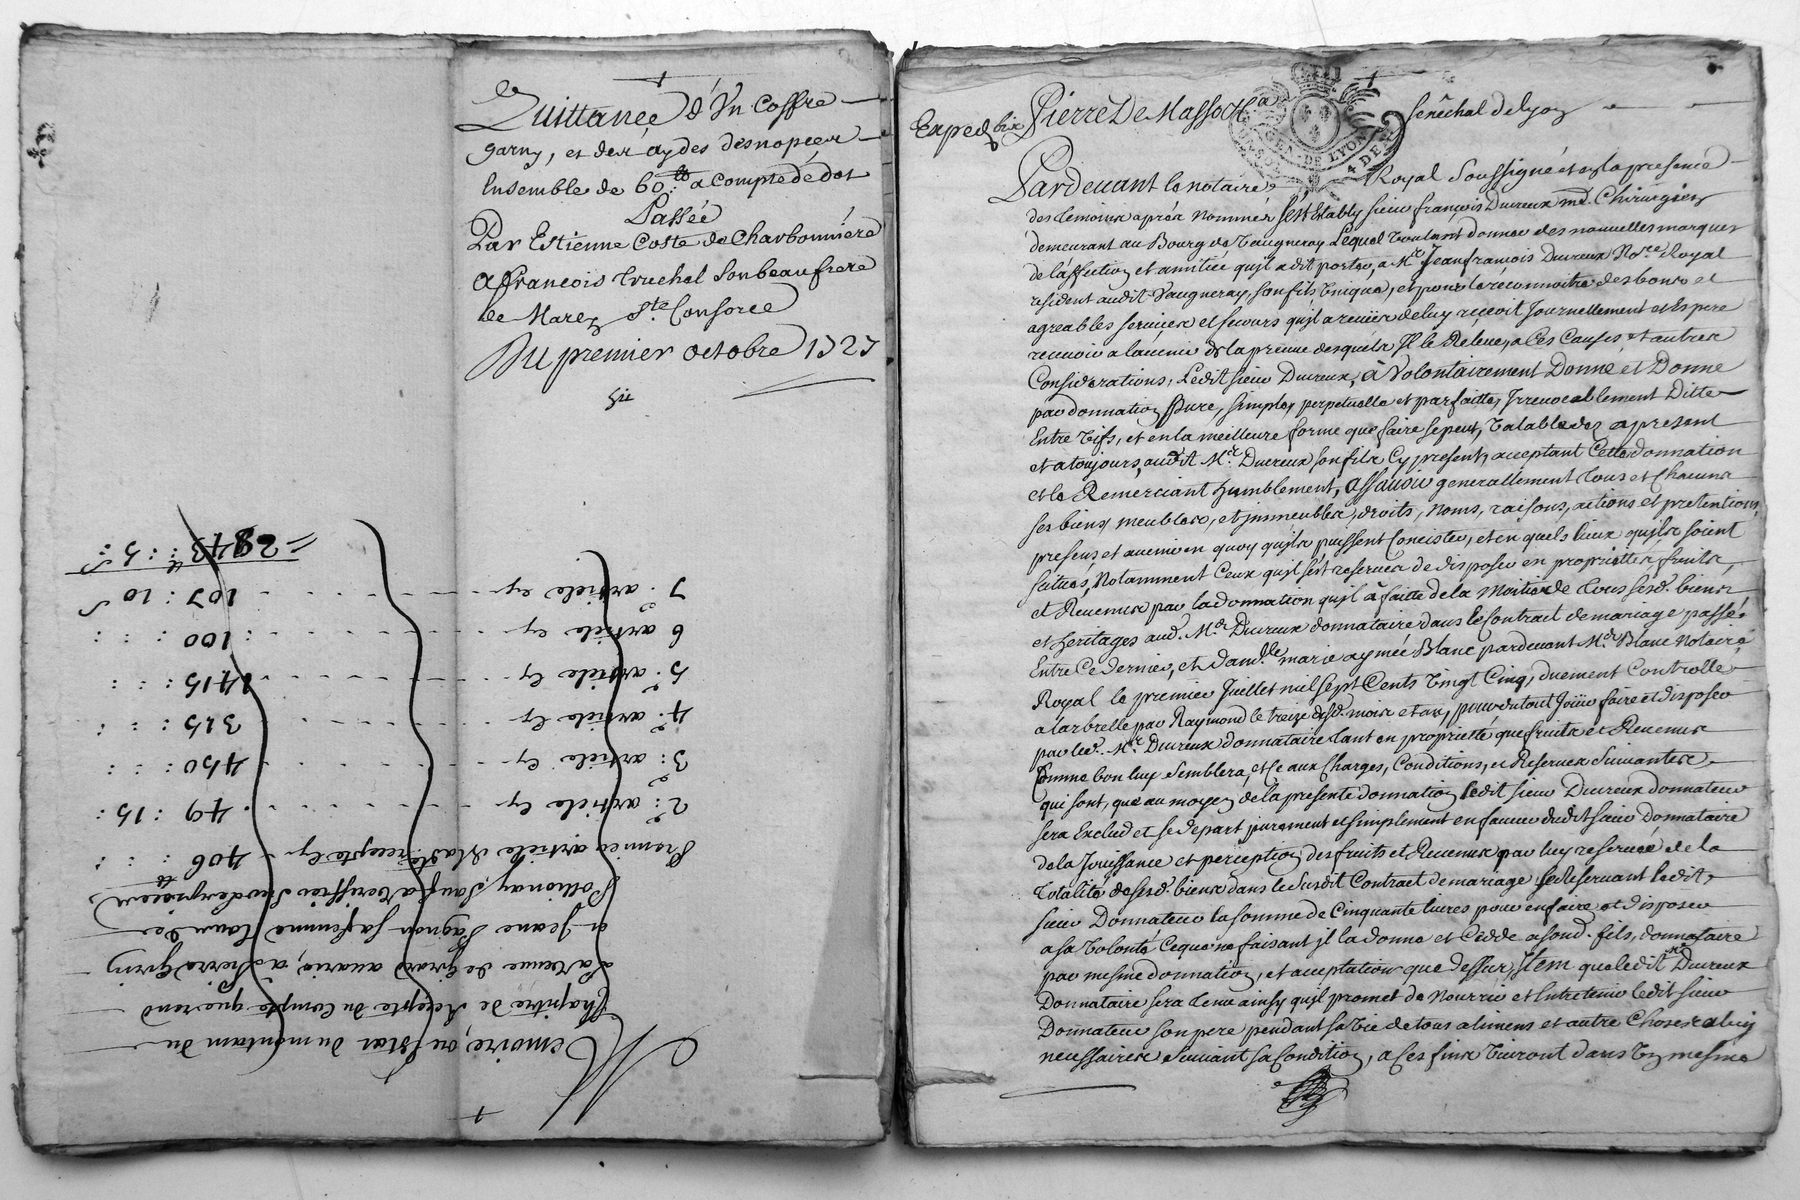 Quittance d'Un Coffre
garny, et des aydes desnopces
Ensemble de 60:tt a compte de dot
Passée
Par Estienne Coste de Charbonniere
A francois truchet Son beaufrere
de Marcy Ste Consorce
Du premier octobre 1727
Memoire, ou Etat du montant du
Chapitre de Recepte du Compte que rend
La veuve de Girard avarie, a Pierre Griny
et Jeanne Pagnon sa femme
Pollionay, Sauf a veriffier
Premier article de recepte Cy 406 : :
2e article Cy 49 : 15 :
3e article Cy 450 : :
4e article Cy 315 : :
5e article Cy 1415 : :
6 article Cy 100 : :
7e article Cy 107 : 10 s
= 2843 tt : 5 s :
Exped bis Pierre De Masso Senêchal de lyon
GEN. DE LYON 4 DEN
Pardevant le notaire Royal Soussigné et en la presence
des temoins aprés nommés Sest Etably sieur françois Ducreux md. Chirurgien
demeurant au Bourg de Vaugneray Lequel voulant donner des nouvelles marques
de l'affection et amitiée qu'jl a dit porter, a Mr. Jean francois Ducreux Nore. Royal
resident audit Vaugneray, son fils Unique, et pour le reconnoitre des bons et
agreables services et secours qu'jl a receües de luy reçoit Journellement et Espere
recevoir a lavenir de la preuve desquels Jl le Releve, a Ces Causes et autres
Considerations, Ledit sieur Ducreux, à Volontairement Donné et Donne
par donnation Pure, simple, perpetuelle et parfaitte, Irrevocablement Ditte
Entre vifs, et en la meilleure forme que faire se peut, Valable des apresent
et atoujours, audit Mr. Ducreux son fils Cy present, acceptant Cette donnation
et le Remerciant humblement, assavoir generallement tous et Chacuns
ses biens meubles, et jmmeubles, droits, Noms, raisons, actions et pretentions,
presens et avenir en quoy qu'jls puissent Concister, et en quels lieux qu'jls soient
scitués, Notamment Ceux qu'jl s'est reservés de disposer en proprietté, fruits,
et Revenus par la donnation qu'jl à faitte de la Moitié de tous sesd. biens
et heritages aud. Mr. Ducreux donnataire dans le Contract de mariage passé
Entre Ce dernier, et dam.lle marie aymée Blanc pardevant Mr. Blanc Notaire
Royal le premier Juillet mil sept Cents Vingt Cinq, duement Controllé
à larbrelle par Raymond le treize desd. mois et an, pour du tout Joüir faire et disposer
par led. Mr. Ducreux donnataire tant en proprietté que fruits et Revenus
Comme bon luy semblera, et Ce aux Charges, Conditions, et Reserves Suivantes
qui sont, que au moyen de la presente donnation ledit sieur Ducreux donnateur
sera Exclud et se depart purement et simplement en faveur dudit sieur Donnataire
de la Jouissance et perception des fruits et Revenus par luy reservée de la
Totalité de sesd. biens dans le Susdit Contract de mariage se Reservant ledit
sieur Donnateur la somme de Cinquante livres pour en faire et disposer
a sa Volonté Ceque ne faisant jl la donne et Cedde a sond. fils, donnataire
par mesme donnation, et acceptation que dessus, Item que ledit Mr Ducreux
Donnataire sera tenu ainsy qu'jl promet de Nourrir et Entretenir ledit sieur
Donnateur son pere pendant sa vie de tous alimens et autre Choses a luy
necessaires Suivant sa Condition, a Ces fins vivront dans Un mesme